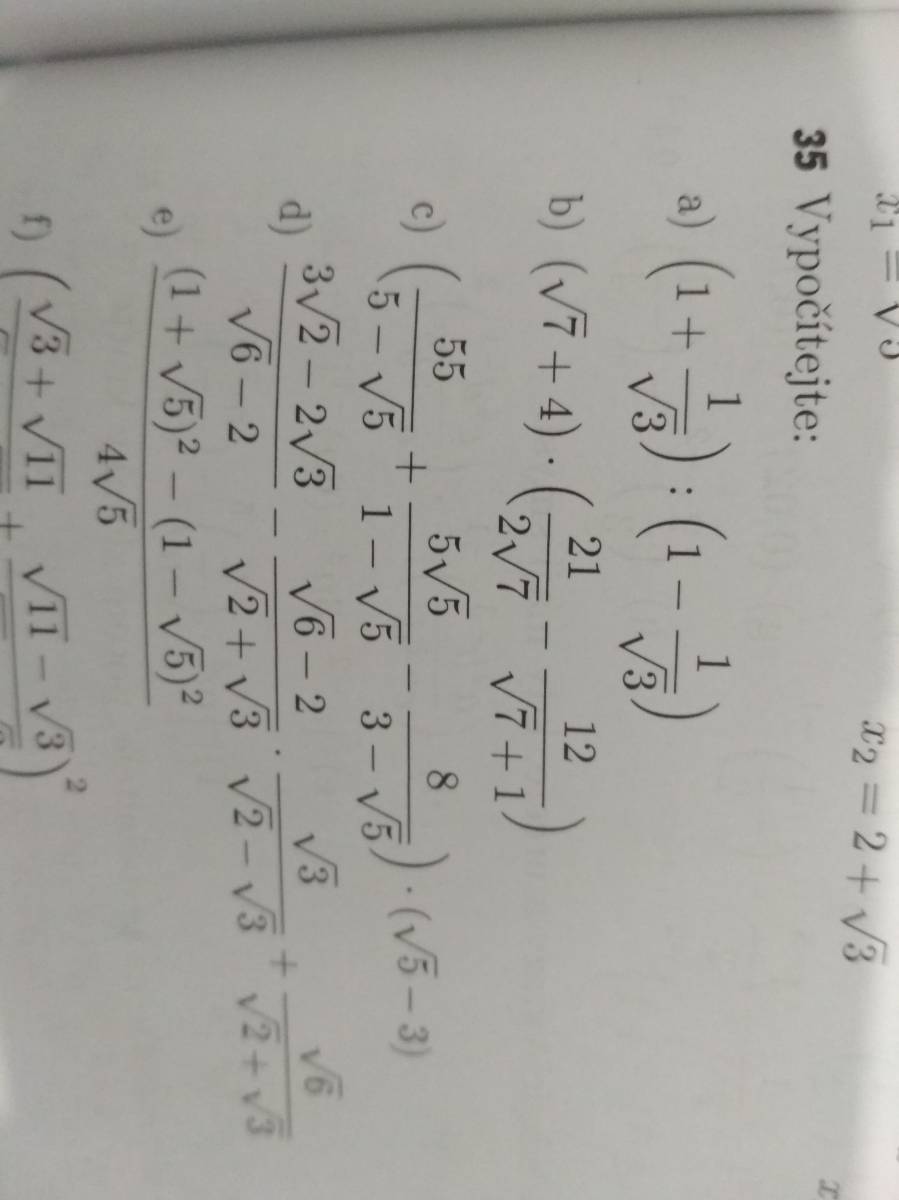 x₁ = √3 x₂ = 2 + √3
35 Vypočítejte:
a) (1 + 1/√3) : (1 − 1/√3)
b) (√7 + 4) · (21/(2√7) − 12/(√7 + 1))
c) (55/(5 − √5) + 5√5/(1 − √5) − 8/(3 − √5)) · (√5 − 3)
d) (3√2 − 2√3)/(√6 − 2) − (√6 − 2)/(√2 + √3) · √3/(√2 − √3) + √6/(√2 + √3)
e) ((1 + √5)² − (1 − √5)²)/(4√5)
f) ((√3 + √11)/ + (√11 − √3)/)²